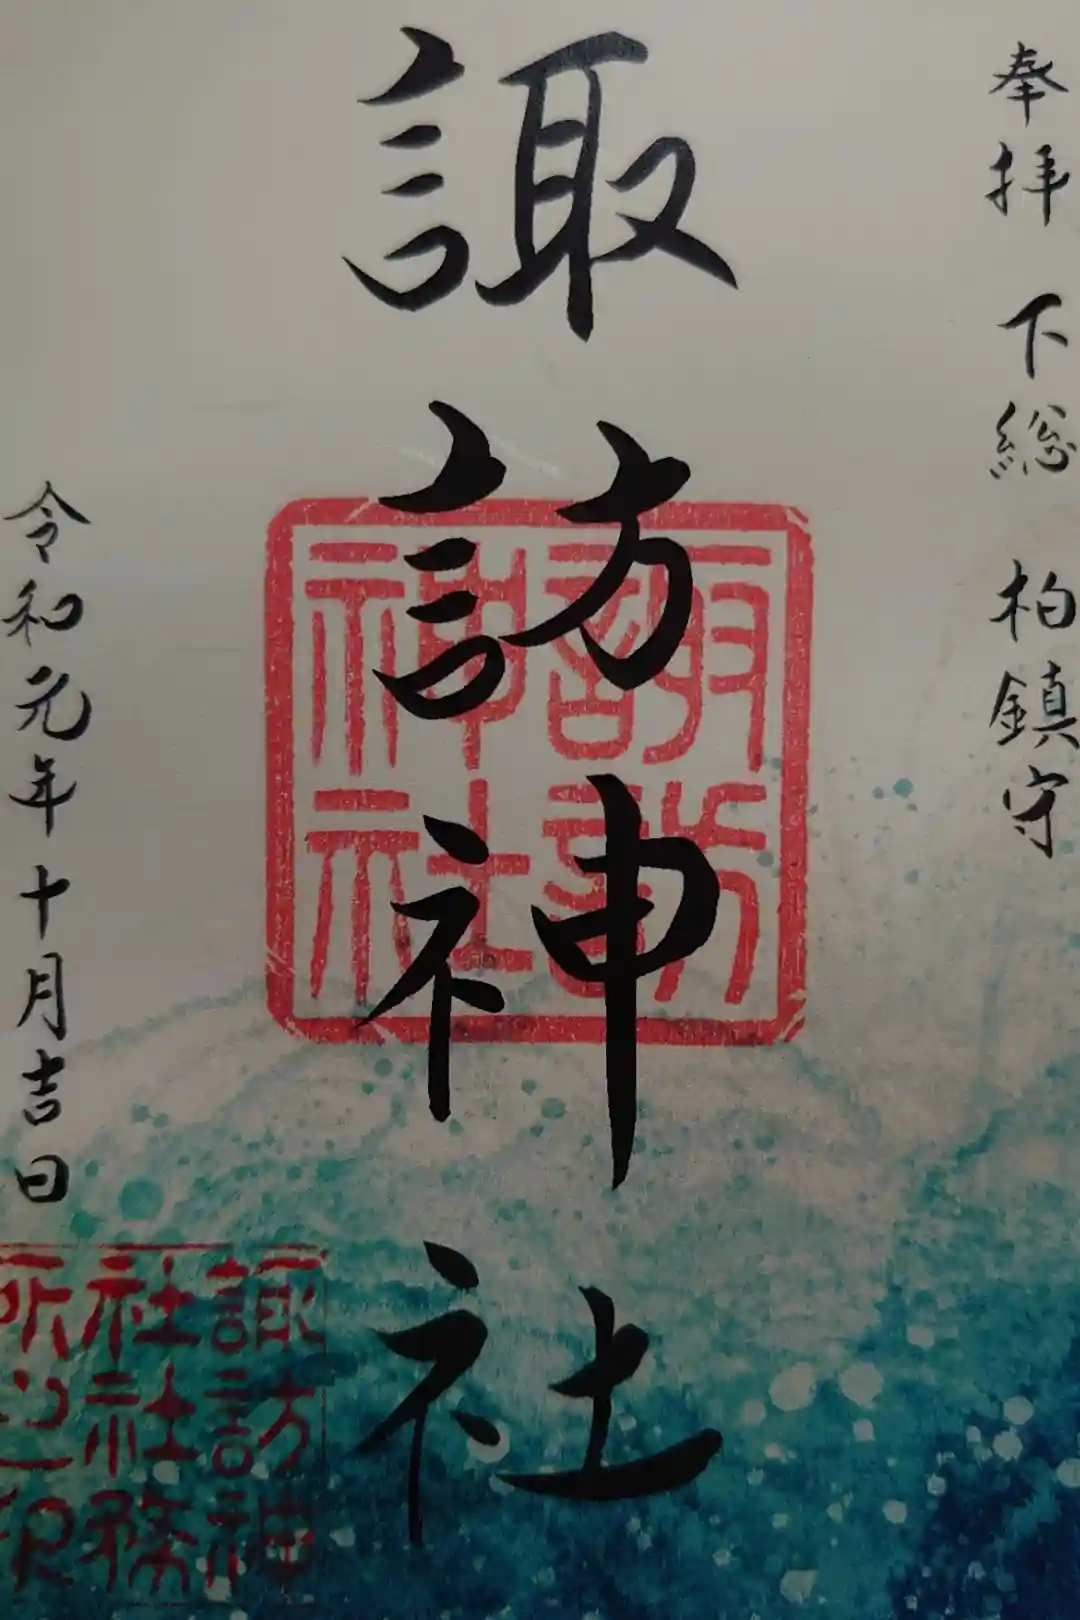 奉拝 下総 柏鎮守
諏訪神社
諏訪
神社
令和元年十月吉日
諏訪神
社社務
所之印